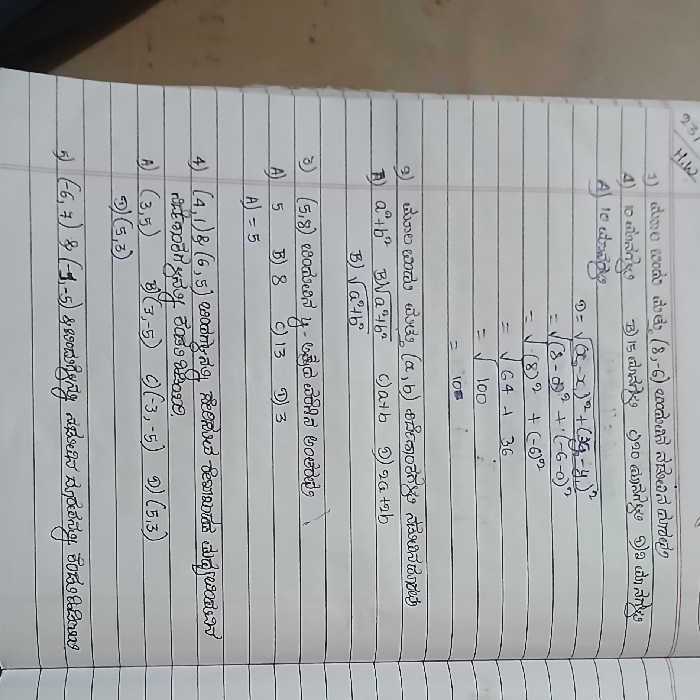 23.1
H.W
1) ಮೂಲ ಬಿಂದು ಮತ್ತು (8,-6) ಬಿಂದುವಿನ ನಡುವಿನ ದೂರವು
A) 10 ಮಾನಗಳು B) 15 ಮಾನಗಳು C) 20 ಮಾನಗಳು D) 2 ಮಾನಗಳು
A) 10 ಮಾನಗಳು
D = √(x₂-x₁)² + (y₂-y₁)²
= √(8-0)² + (-6-0)²
= √(8)² + (-6)²
= √64 + 36
= √100
= 10
2) ಮೂಲ ಬಿಂದು ಮತ್ತು (a, b) ನಡುವಿನ ದೂರವು
A) a²+b² B) √a²+b² C) a+b D) 2a+2b
B) √a²+b²
3) (5,8) ಬಿಂದುವಿನ y-ಅಕ್ಷದ ಮೇಲಿನ ದೂರವು
A) 5 B) 8 C) 13 D) 3
A) = 5
4) (4,1) & (6,5) ಬಿಂದುಗಳನ್ನು ಸೇರಿಸುವ ರೇಖಾಖಂಡದ ಮಧ್ಯಬಿಂದುವಿನ
ನಿರ್ದೇಶಾಂಕಗಳನ್ನು ಕಂಡುಹಿಡಿಯಿರಿ
A) (3,5) B) (3,-5) C) (3,-5) D) (5,3)
D) (5,3)
5) (-6,7) & (-1,-5) ಬಿಂದುಗಳನ್ನು ನಡುವಿನ ದೂರವನ್ನು ಕಂಡುಹಿಡಿಯಿರಿ